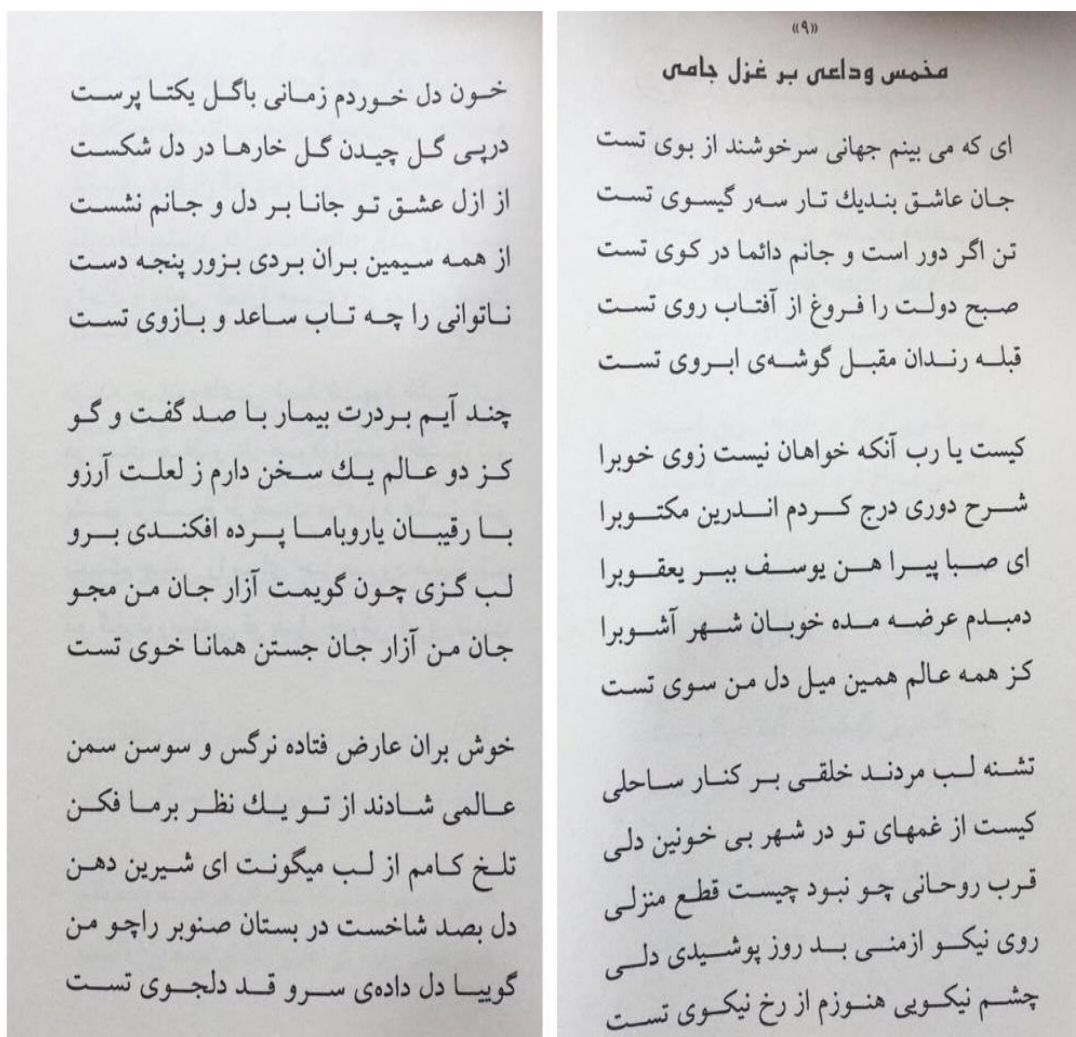 «۹»
مخمس وداعی بر غزل جامی
ای که می بینم جهانی سرخوشند از بوی تست
جان عاشق بندیك تار سەر گیسوی تست
تن اگر دور است و جانم دائما در کوی تست
صبح دولت را فروغ از آفتاب روی تست
قبله رندان مقبل گوشه‌ی ابروی تست
کیست یا رب آنکه خواهان نیست زوی خوبرا
شرح دوری درج کردم اندرین مکتوبرا
ای صبا پیرا هن یوسف ببر یعقوبرا
دمبدم عرضه مده خوبان شهر آشوبرا
کز همه عالم همین میل دل من سوی تست
تشنه لب مردند خلقی بر کنار ساحلی
کیست از غمهای تو در شهر بی خونین دلی
قرب روحانی چو نبود چیست قطع منزلی
روی نیکو ازمنی بد روز پوشیدی دلی
چشم نیکویی هنوزم از رخ نیکوی تست
خون دل خوردم زمانی باگل یکتا پرست
درپی گل چیدن گل خارها در دل شکست
از ازل عشق تو جانا بر دل و جانم نشست
از همه سیمین بران بردی بزور پنجه دست
ناتوانی را چه تاب ساعد و بازوی تست
چند آیم بردرت بیمار با صد گفت و گو
کز دو عالم یك سخن دارم ز لعلت آرزو
با رقیبان یاروباما پرده افکندی برو
لب گزی چون گویمت آزار جان من مجو
جان من آزار جان جستن همانا خوی تست
خوش بران عارض فتاده نرگس و سوسن سمن
عالمی شادند از تو یك نظر برما فکن
تلخ کامم از لب میگونت ای شیرین دهن
دل بصد شاخست در بستان صنوبر راچو من
گوییا دل داده‌ی سرو قد دلجوی تست